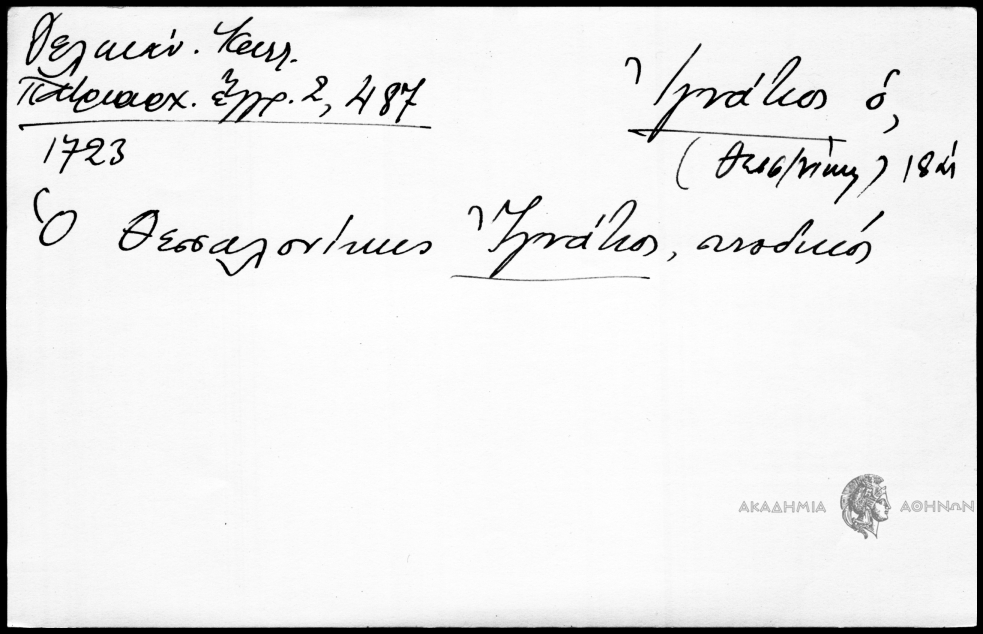 Δελικάν. Καλλ.
Πατριαρχ. ἔγγρ. 2, 487
1723
Ἰγνάτιος ὁ,
(Θεσσ/νίκης) 18 αἰ
Ὁ Θεσσαλονίκης Ἰγνάτιος, συνοδικός
ΑΚΑΔΗΜΙΑ ΑΘΗΝΩΝ